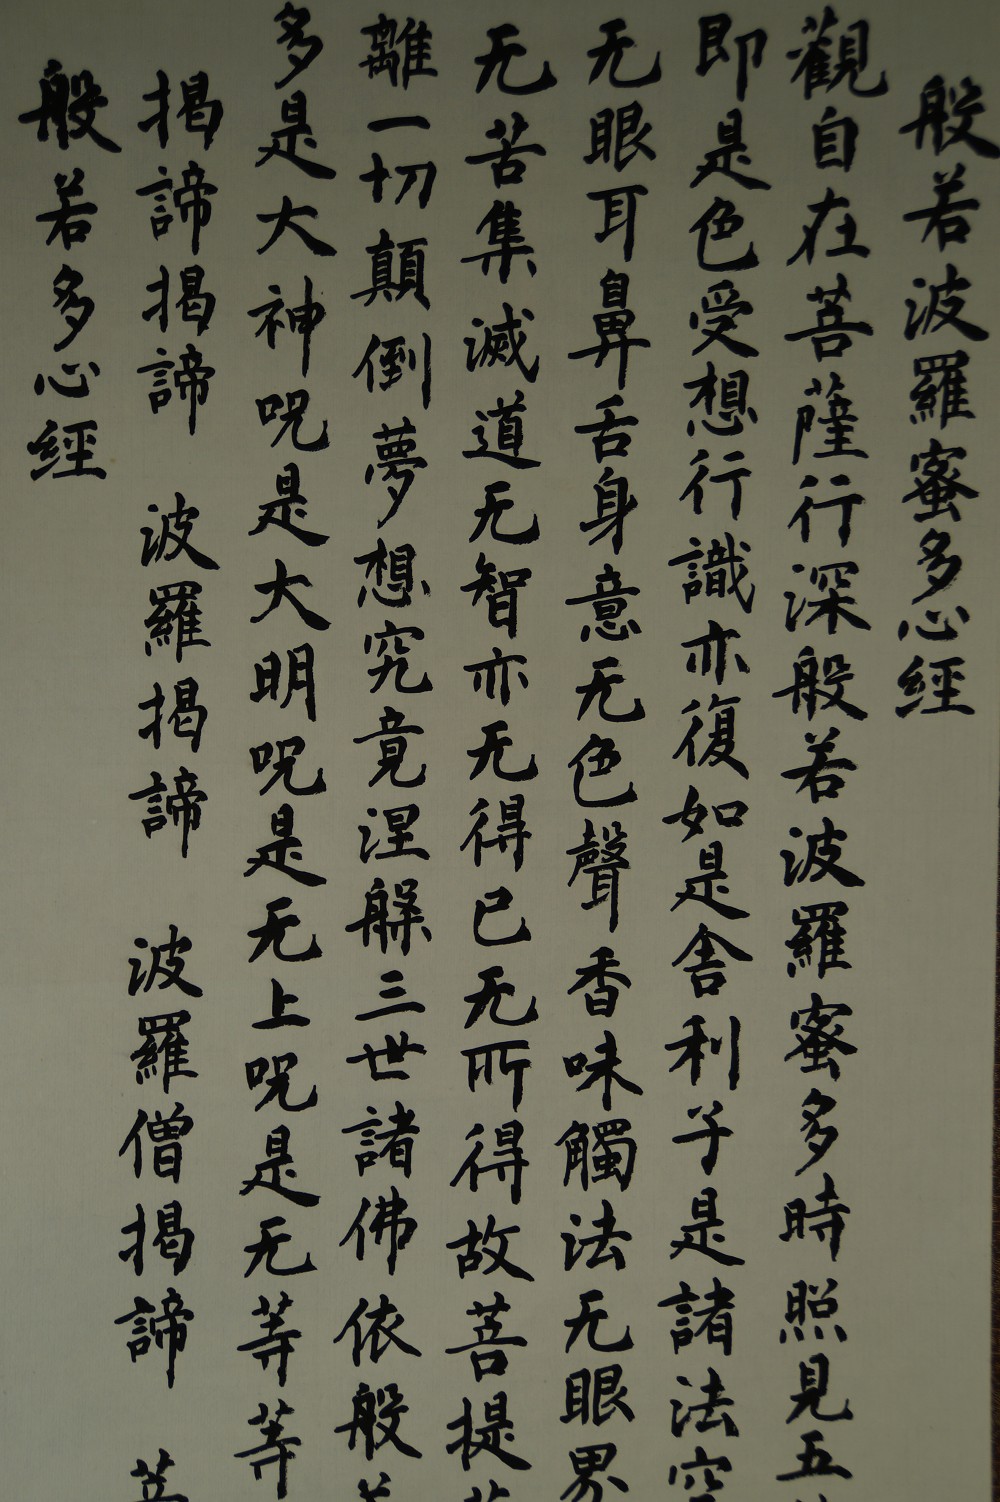 般若波羅蜜多心經
觀自在菩薩行深般若波羅蜜多時照見五
即是色受想行識亦復如是舍利子是諸法空
无眼耳鼻舌身意无色聲香味觸法无眼界
无苦集滅道无智亦无得已无所得故菩提
離一切顛倒夢想究竟涅槃三世諸佛依般
多是大神咒是大明咒是无上咒是无等等
揭諦揭諦 波羅揭諦 波羅僧揭諦 菩
般若多心經